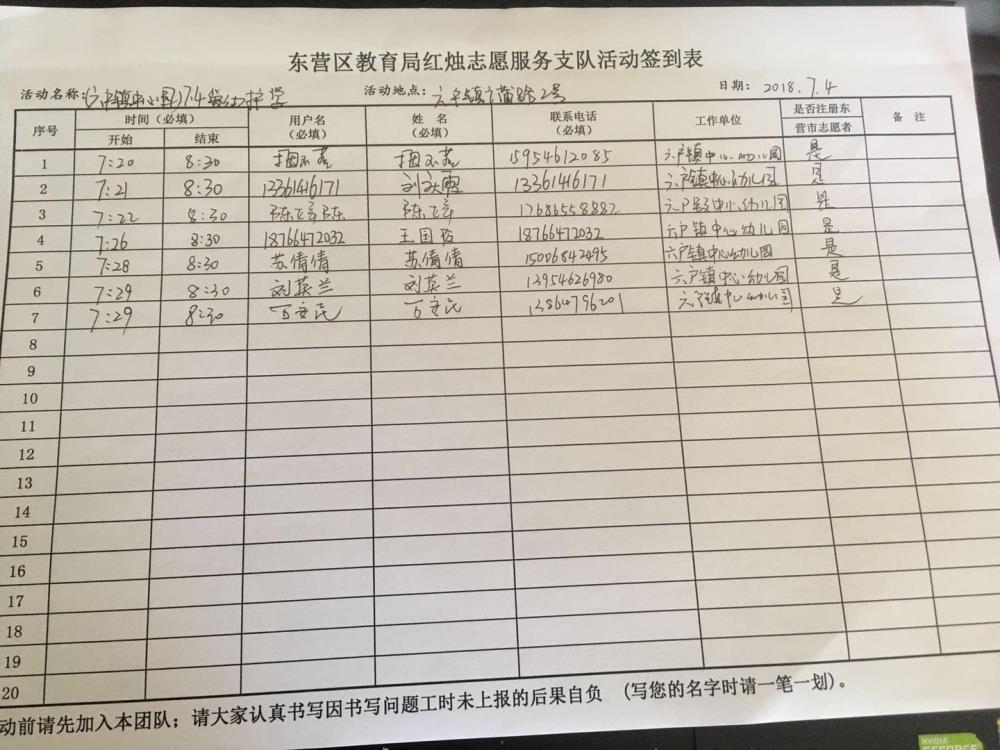 东营区教育局红烛志愿服务支队活动签到表
活动名称:(六户镇中心园)7.4 护学 活动地点: 六户镇 路2号 日期: 2018.7.4
序号 时间(必填) 用户名(必填) 姓 名(必填) 联系电话(必填) 工作单位 是否注册东营市志愿者 备 注
开始 结束
1 7:20 8:30 15954612085 六户镇中心幼儿园 是
2 7:21 8:30 13361416171 刘 霞 13361416171 六户镇中心幼儿园 是
3 7:22 8:30 陈 陈 17686558882 六户镇中心幼儿园 是
4 7:26 8:30 18766472032 王国 18766472032 六户镇中心幼儿园 是
5 7:28 8:30 苏倩倩 苏倩倩 15006842495 六户镇中心幼儿园 是
6 7:29 8:30 刘英兰 刘英兰 13954626980 六户镇中心幼儿园 是
7 7:29 8:30 13864796201 六户镇中心幼儿园 是
8
9
10
11
12
13
14
15
16
17
18
19
20
动前请先加入本团队；请大家认真书写因书写问题工时未上报的后果自负 (写您的名字时请一笔一划)。
NVIDIA
GEFORCE